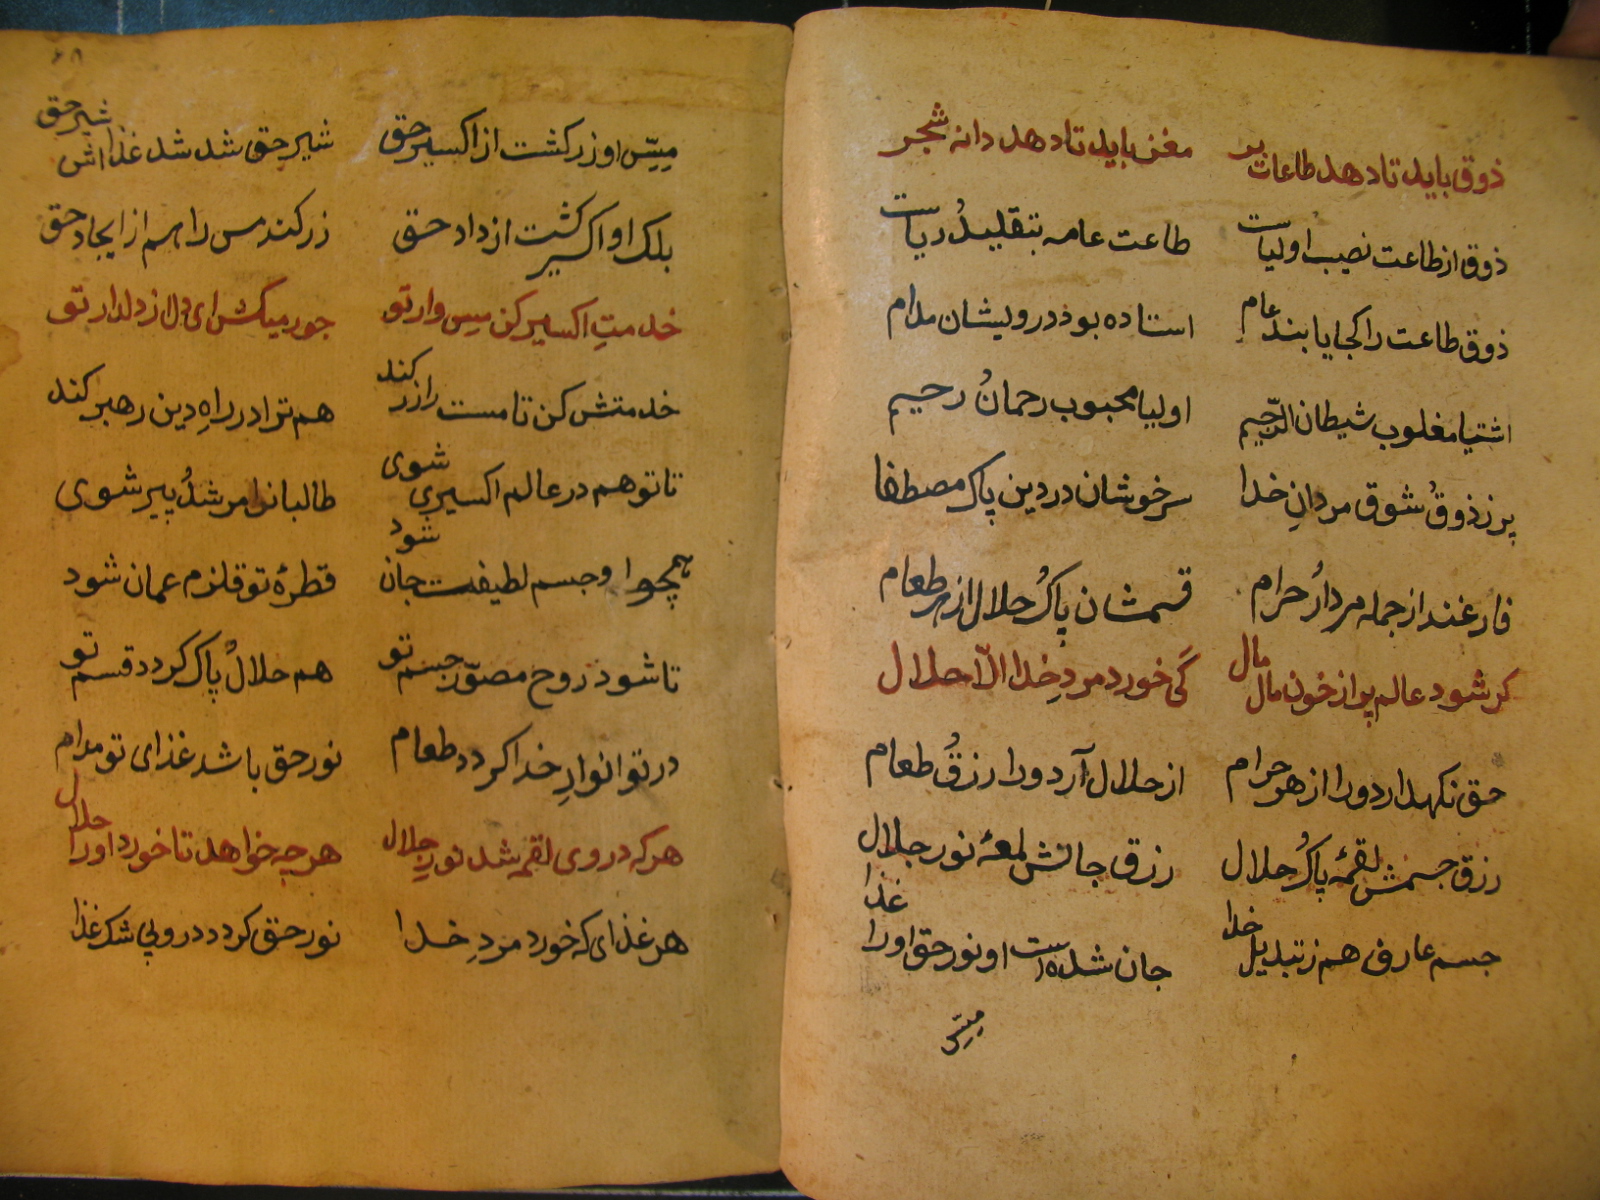 ذوق باید تا دهد طاعات بر مغز باید تا دهد دانه شجر
ذوق از طاعت نصیب اولیاست طاعت عامه بتقلید ریاست
ذوق طاعت را کجا یابند عام استاده بوذ درویشان مدام
اشقیا مغلوب شیطان الرّجیم اولیا محبوب رحمانُ رحیم
پر ز ذوقُ شوق مردانِ خدا سرخوشان در دین پاک مصطفا
فارغند از جمله مردارُ حرام قسمشان پاکُ حلال از هر طعام
کر شود عالم پر از خون مال مال کَی خورد مردِ خدا الّا حلال
حق نکهدارد ورا از هر حرام از حلال آرد ورا رزقُ طعام
رزق جسمش لقمهٔ پاکُ حلال رزق جانش لمعهٔ نور جلال
جسم عارف هم ز تبدیل خدا جان شده‌است او نور حق اورا غذا
مِسِّ
۶۸
مِسِّ او زر کشت از اکسیر حق شیر حق شد شد غذااش شیر حق
بلک او اکسیر کشت از داد حق زر کند مس را هم از ایجاد حق
خدمتِ اکسیر کن مس وار تو جور میکش ای دل از دلدار تو
خدمتش کن تا مست را زر کند هم ترا در راهِ دین رهبر کند
تا تو هم در عالم اکسیری شوی طالبانرا مرشدُ پیر شوی
همچو او جسم لطیفت جان شود قطرهٔ تو قلزم عمان شود
تا شود روح مصوّر جسم تو هم حلالُ پاک کردد قسم تو
در تو انوارِ خدا کردد طعام نور حق باشد غذای تو مدام
هر که در وی لقمه شد نورِ جلال هر چه خواهد تا خورد اورا حلال
هر غذای که خورد مردِ خدا نور حق کردد درو بی شک غذا